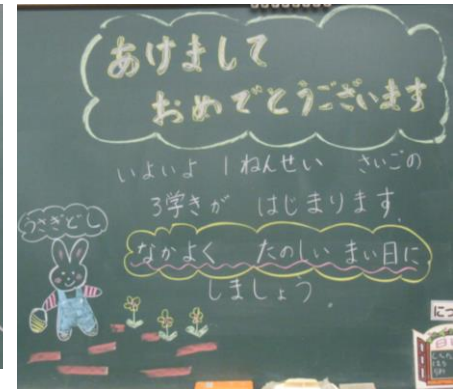 あけまして
おめでとうございます
いよいよ 1ねんせい さいごの
3学きが はじまります.
うさぎどし
なかよく たのしい まい日に
しましょう.
につ